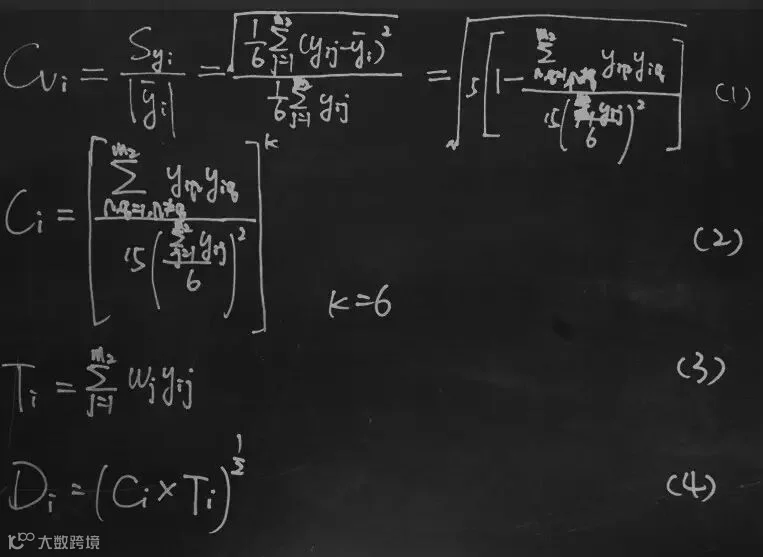 C_{vi} = \frac{S_{yi}}{|\bar{y}_i|} = \frac{\sqrt{\frac{1}{6}\sum_{j=1}^{m_2}(y_{ij}-\bar{y}_i)^2}}{\frac{1}{6}\sum_{j=1}^{m_2} y_{ij}} = \sqrt{5\left[1-\frac{\sum_{p,q=1,p≠q}^{m_2} y_{ip}y_{iq}}{15\left(\frac{\sum_{j=1}^{m_2} y_{ij}}{6}\right)^2}\right]} (1)
C_i = \left[\frac{\sum_{p,q=1,p≠q}^{m_2} y_{ip}y_{iq}}{15\left(\frac{\sum_{j=1}^{m_2} y_{ij}}{6}\right)^2}\right]^K (2)
K=6
T_i = \sum_{j=1}^{m_2} w_j y_{ij} (3)
D_i = (C_i × T_i)^{\frac{1}{2}} (4)
10100 大数跨境